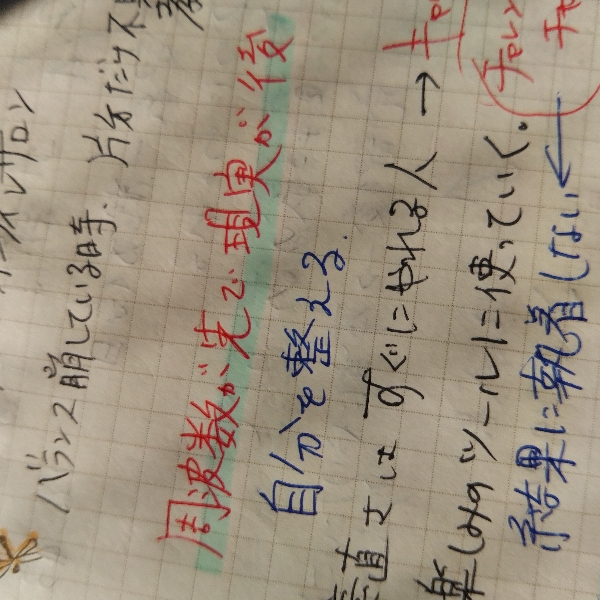 バランス崩している時、片分だけ
周波数が先で現実が後
自分を整える.
素直さは すぐにやれる人 →
楽しみのツールに使っていく。
結果に執着しない ←